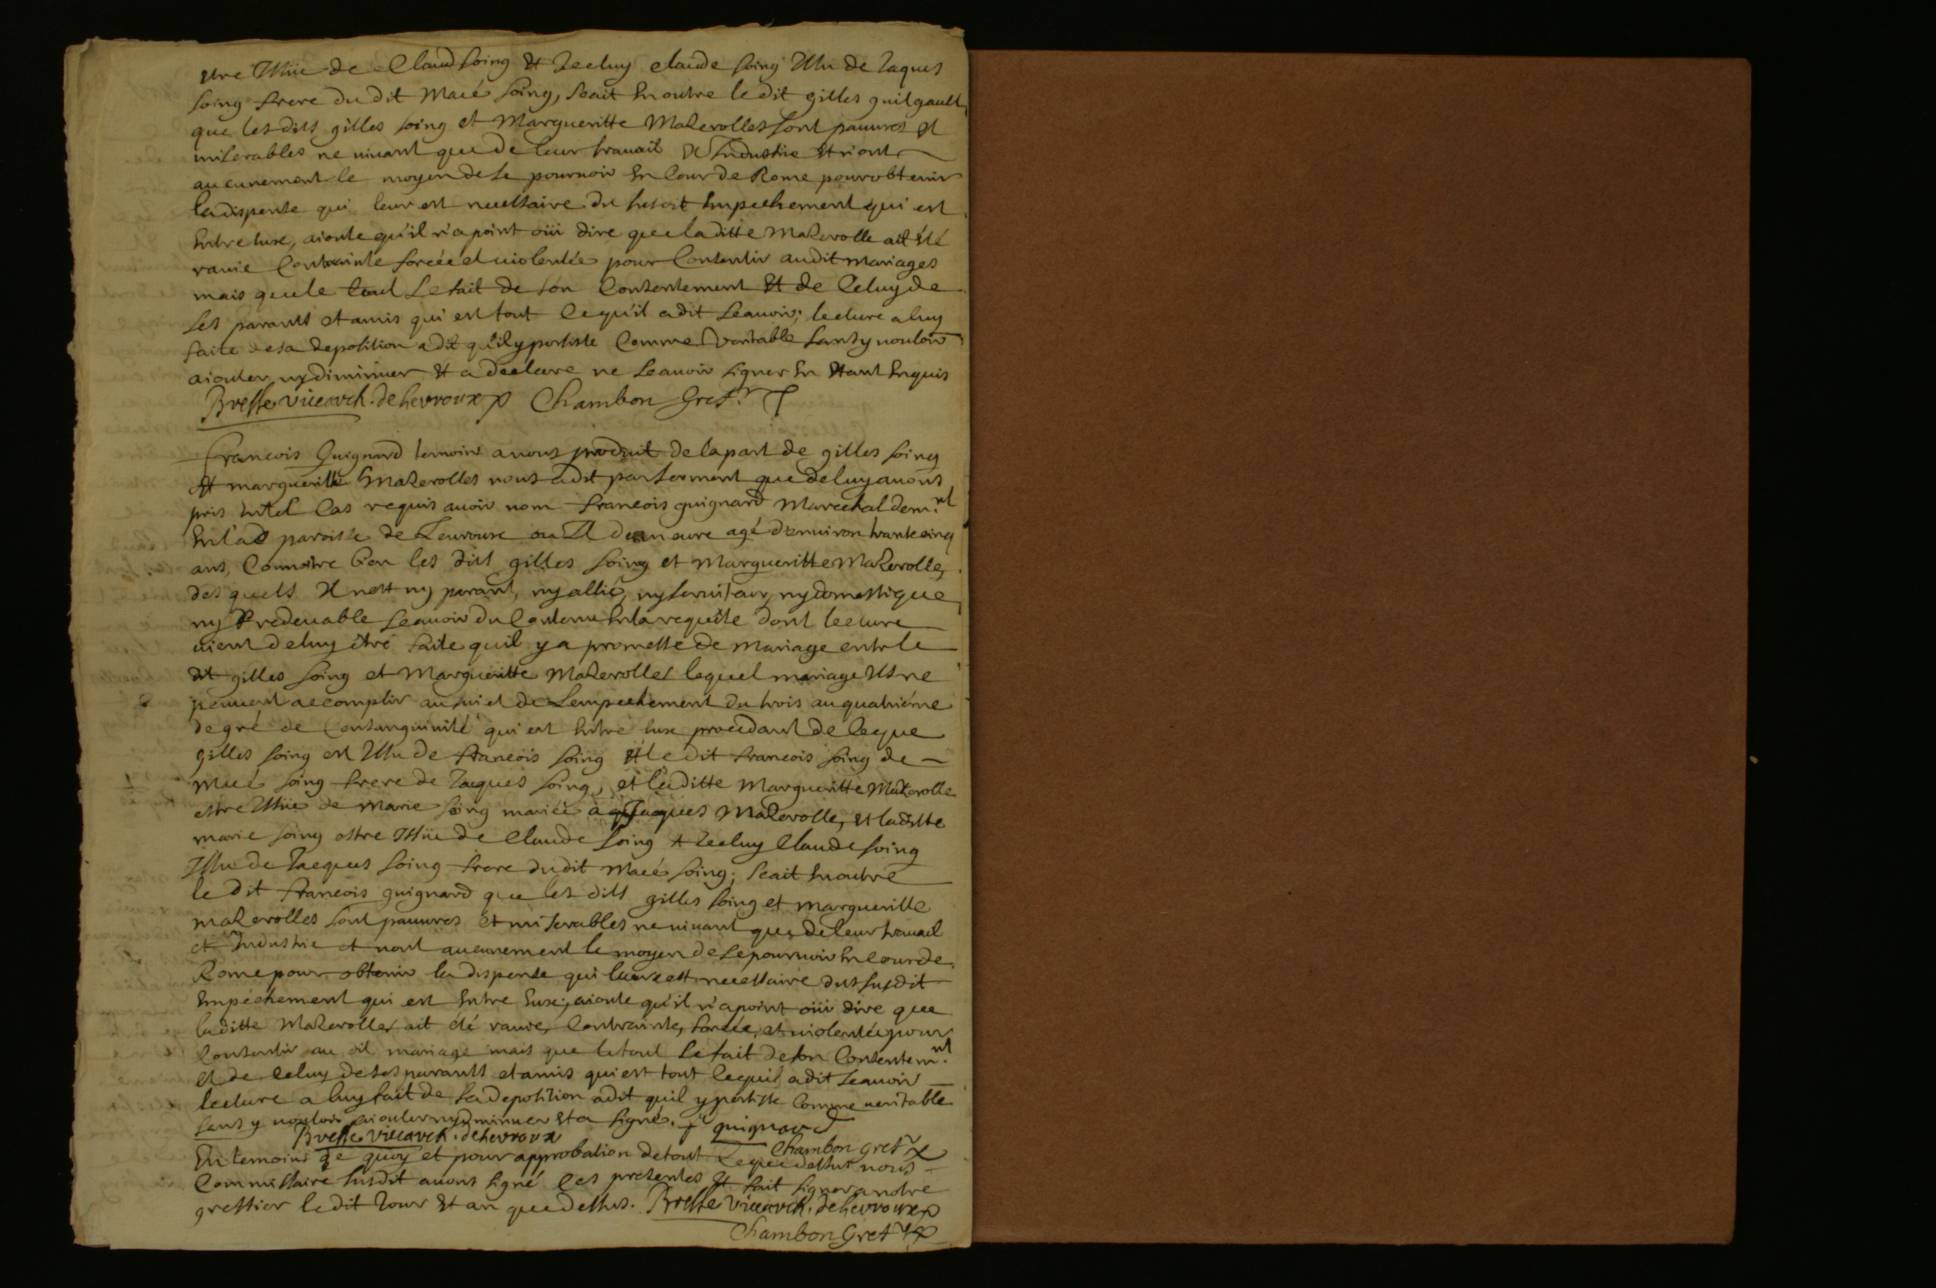 etre issüe de Claud soing et Iceluy claude soing issu de Iaques
soing frere du dit Macé soing, scait En outre le dit gilles guilgault
que les dits gilles soing et Margueritte Mazerolles sont pauures et
miserables ne uiuant que de leur trauail et Industrie et n'ont
aucunement le moyen de se pouruoir En Cour de Rome pour obtenir
la dispense qui leur est necessaire du susdit Empechement qui est
Entre Eux, aioute qu'il n'a point oüi dire que laditte Mazerolle ait été
rauie Contrainte forcée et uiolentée pour Consentir audit mariages
mais que le tout se fait de son Consentement et de Celuy de
ses parants et amis qui est tout Ce qu'il a dit scauoir; lecture a luy
faite de sa deposition a dit qu'il y persiste Comme veritable sans y uouloir
aiouter ny diminuer et a declaré ne scauoir signer En etant Enquis
Bresse vicearch. de Levroux Chambon Gref.r
Francois Guignard temoin a nous produit de la part de gilles soing
et margueritte Mazerolles nous a dit par serment que de luy auons
pris En tel Cas requis auoir nom francois guignard Marechal dem.nt
En la d paroisse de Leuroux ou Il demeure agé d'enuiron trante cinq
ans, Connoitre bien les dits gilles soing et Margueritte Mazerolle,
des quels Il n'est ny parant, ny allié, ny seruiteur, ny domestique
ny redeuable scauoir du Contenu En la requête dont lecture
uient de luy être faite quil y a promesse de mariage entre le
dit gilles soing et Margueritte Mazerolles lequel mariage Ils ne
peuuent accomplir au suiet de L'empechement du trois au quatriéme
degré de Consanguinité qui est Entre Eux procedant de Ce que
gilles soing est Issu de francois soing et le dit francois soing de
Macé soing frere de Iaques soing, et laditte Margueritte Mazerolle
estre Issüe de Marie soing mariée a Jaques Mazerolle, et laditte
marie soing estre Issüe de Claude soing et Iceluy Claude soing
Issu de Iacques soing frere dudit Macé soing; scait En outre
le dit francois guignard que les dits gilles soing et margueritte
mazerolles sont pauures et miserables ne uiuant que de leur trauail
et Industrie et n'ont aucunement le moyen de se pouruoir En cour de
Rome pour obtenir la dispense qui leur est necessaire du susdit
Empéchement qui est Entre Eux; aioute qu'il n'a point oüi dire que
laditte Mazerolles ait été rauie, Contrainte, forcée, et uiolentée pour
Consentir au dit mariage mais que le tout se fait de son Consentem.nt
et de Celuy de ses parants et amis qui est tout Ce quil a dit scauoir
lecture a luy fait de sa deposition a dit quil y persiste Comme ueritable
sans y uouloir aiouter ny diminuer et a signé. f guignard
Bresse vicearch. de Levroux Chambon gref.r
En temoins de quoy et pour approbation de tout Ce que dessus nous
Commissaire susdit auons signé Ces presentes et fait signer a notre
greffier le dit Iour et an que dessus. Bresse vicearch. de Levroux
Chambon Gref.r